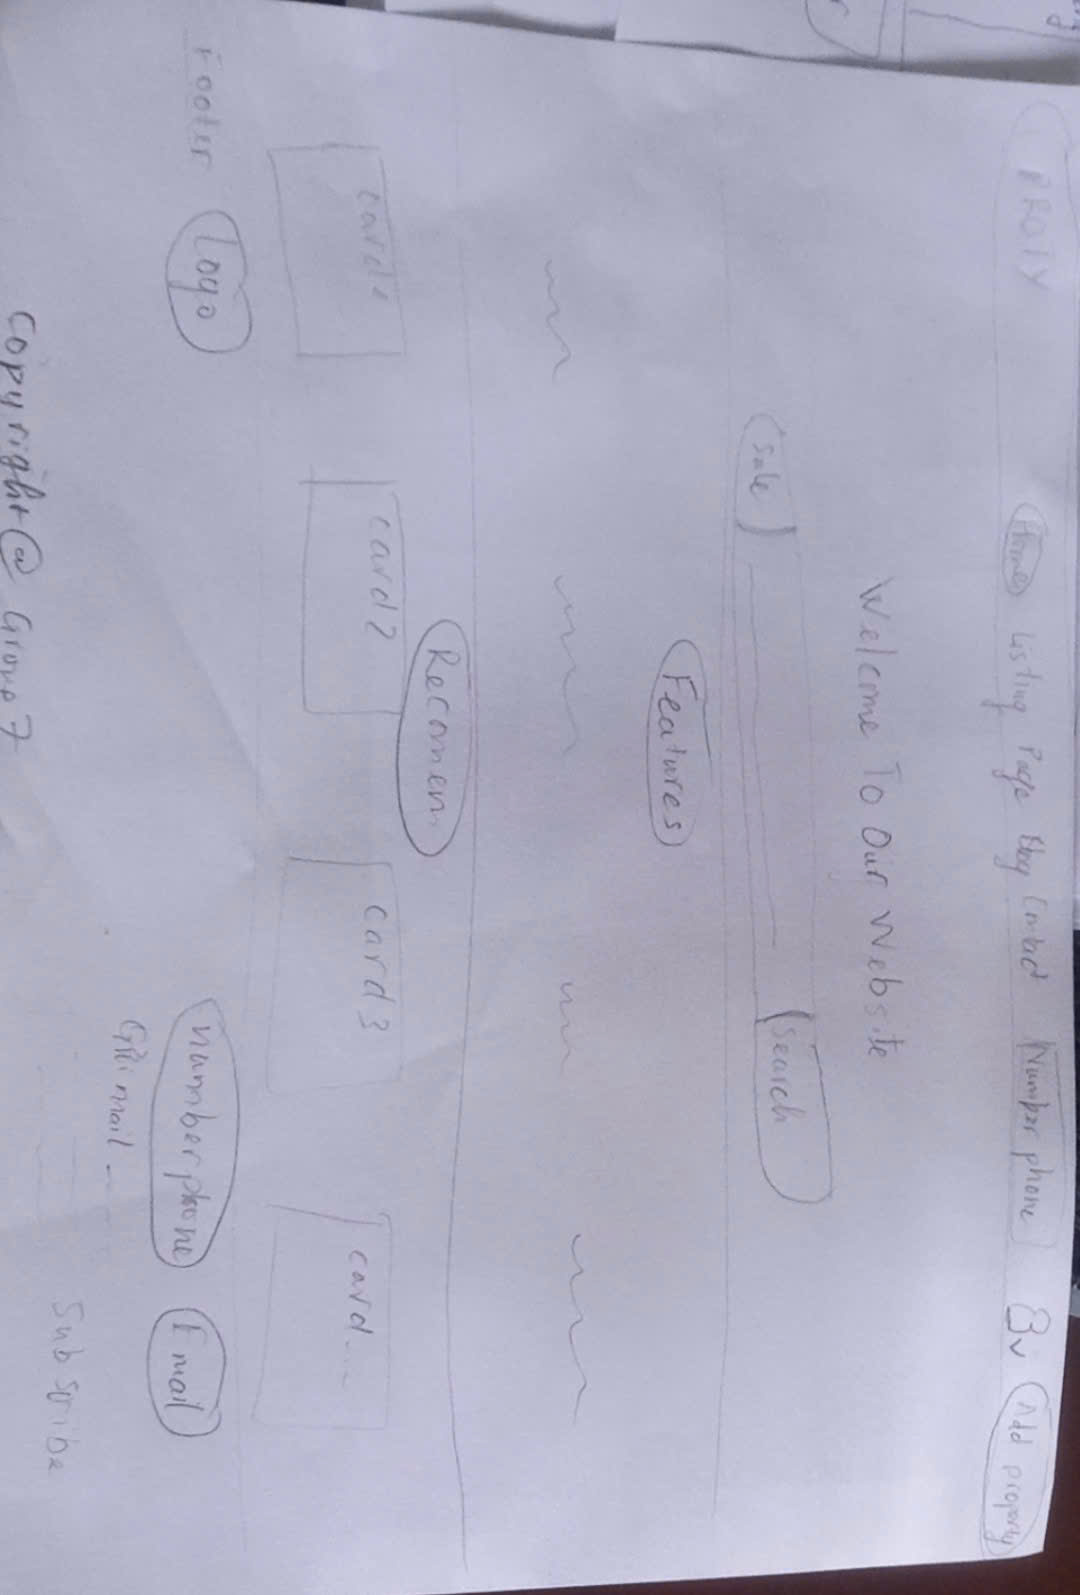 PROTY Home Listing Page Blog Contact Number phone Add property
Welcome To Our Website
Sale Search
Features
Recomen
card1 card2 card3 card....
Footer Logo numberphone Email
Gmail
Subscribe
Copyright@ Group 7